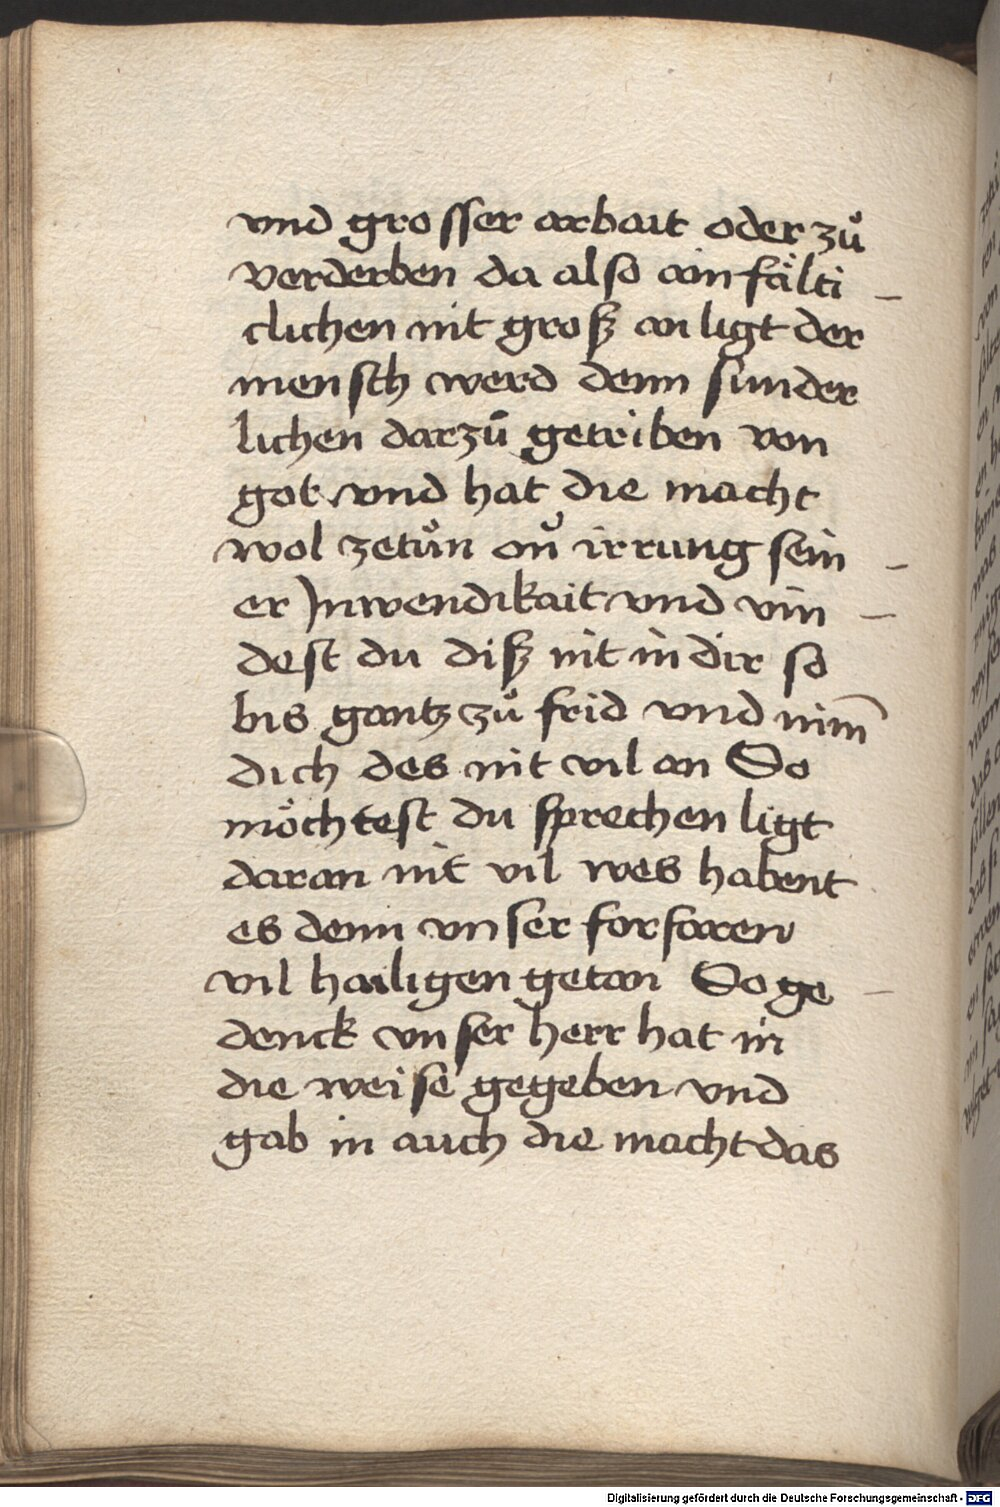 vnd grosser arbait oder zuͦ
verderben da also ainfaͤlti –
clichen nit grosz an ligt der
mensch werd denn sunder
lichen darzuͦ getriben von
got vnd hat die macht
wol zetuͦn on irrung sein –
er Jnwendikait vnd vin –
dest du disz nit in dir so
bis gantz zuͦ frid vnd nim̅
dich des nit vil an So
moͤchtest du sprechen ligt
daran nit vil wes habent
es denn vnser forfaren
vil hailigen getan So ge –
denck vnser herr hat in
die weise gegeben vnd
gab in auch die macht das
Digitalisierung gefördert durch die Deutsche Forschungsgemeinschaft - DFG